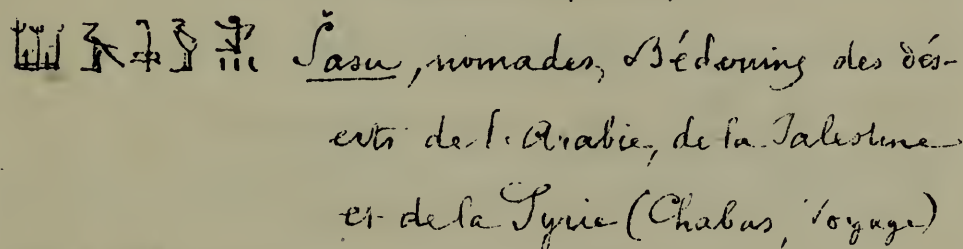 𓆷 𓄿 𓋴 𓅱 𓀀𓏥 Šasu, nomades, Bédouins des dés-
erts de l'Arabie, de la Palestine
et de la Syrie (Chabas, Voyage)